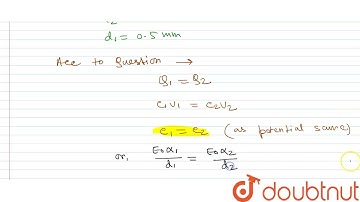 d₁ = 0.5 mm
Acc to Question →
Q₁ = Q₂
C₁V₁ = C₂V₂
C₁ = C₂ (as potential same)
or, E₀α₁/d₁ = E₀α₂/d₂
doubtnut